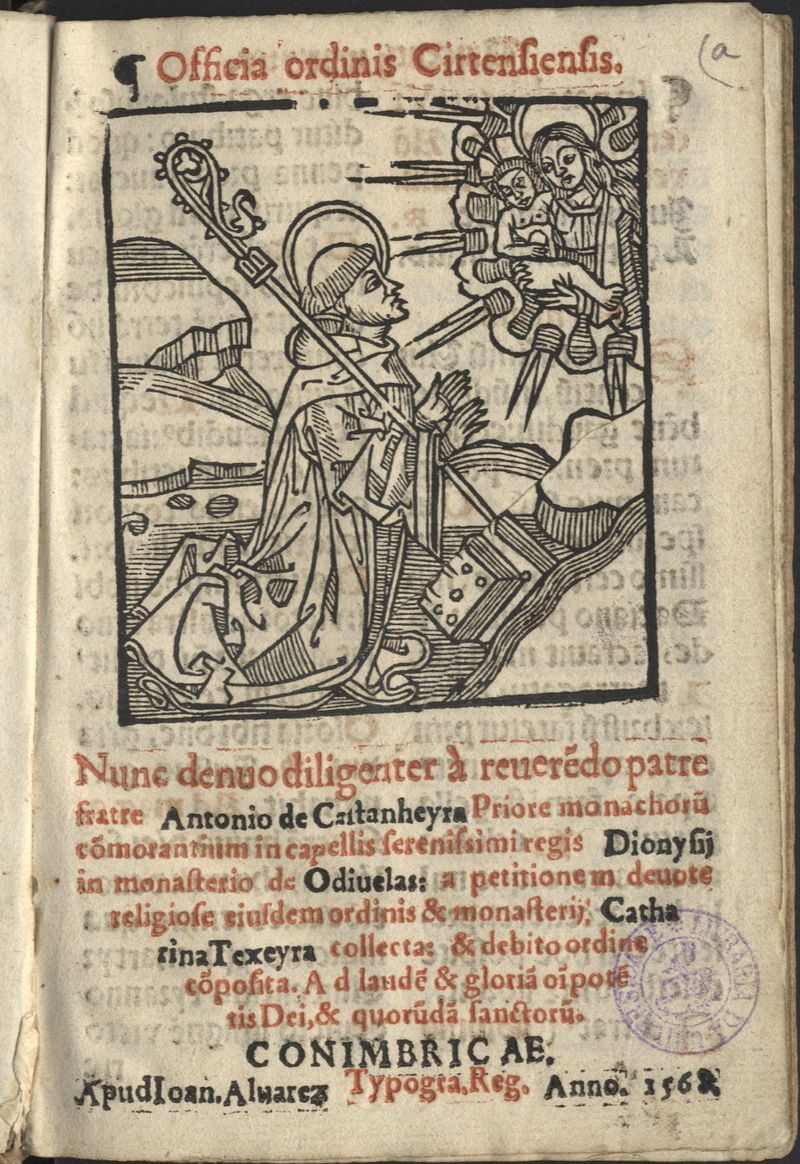 ¶ Officia ordinis Cirtensiensis.
(a
Nunc denuo diligenter à reuerẽdo patre
fratre Antonio de Castanheyra Priore monachorũ
cõmorantium in capellis serenissimi regis Dionysij
in monasterio de Odiuelas: a petitione m deuote
religiose eiusdem ordinis & monasterij, Catha
rina Texeyra collecta: & debito ordine
cõposita. A d laudẽ & gloriã oĩpotẽ
tis Dei, & quorũdã sanctorũ.
CONIMBRIC AE.
Apud Ioan. Aluarez Typogra. Reg. Anno. 156